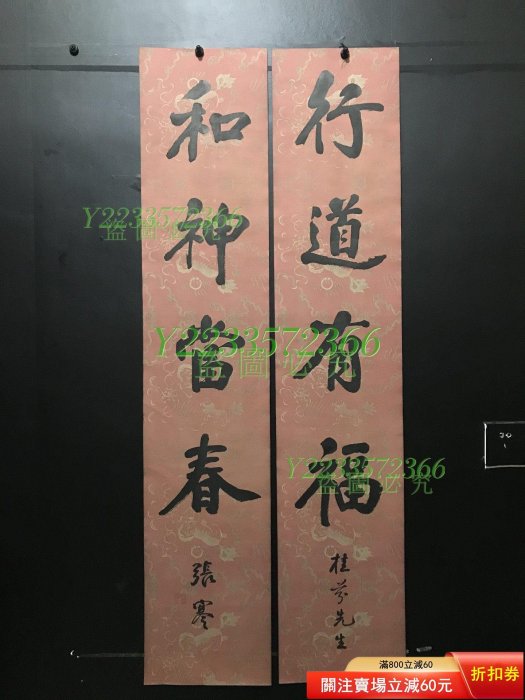 行道有福
桂芬先生
和神當春
張寒
Y2233572366
盜圖必究
Y2233572366
盜圖必究
Y2233572366
盜圖必究
滿800立減60
關注賣場立減60元
折扣券